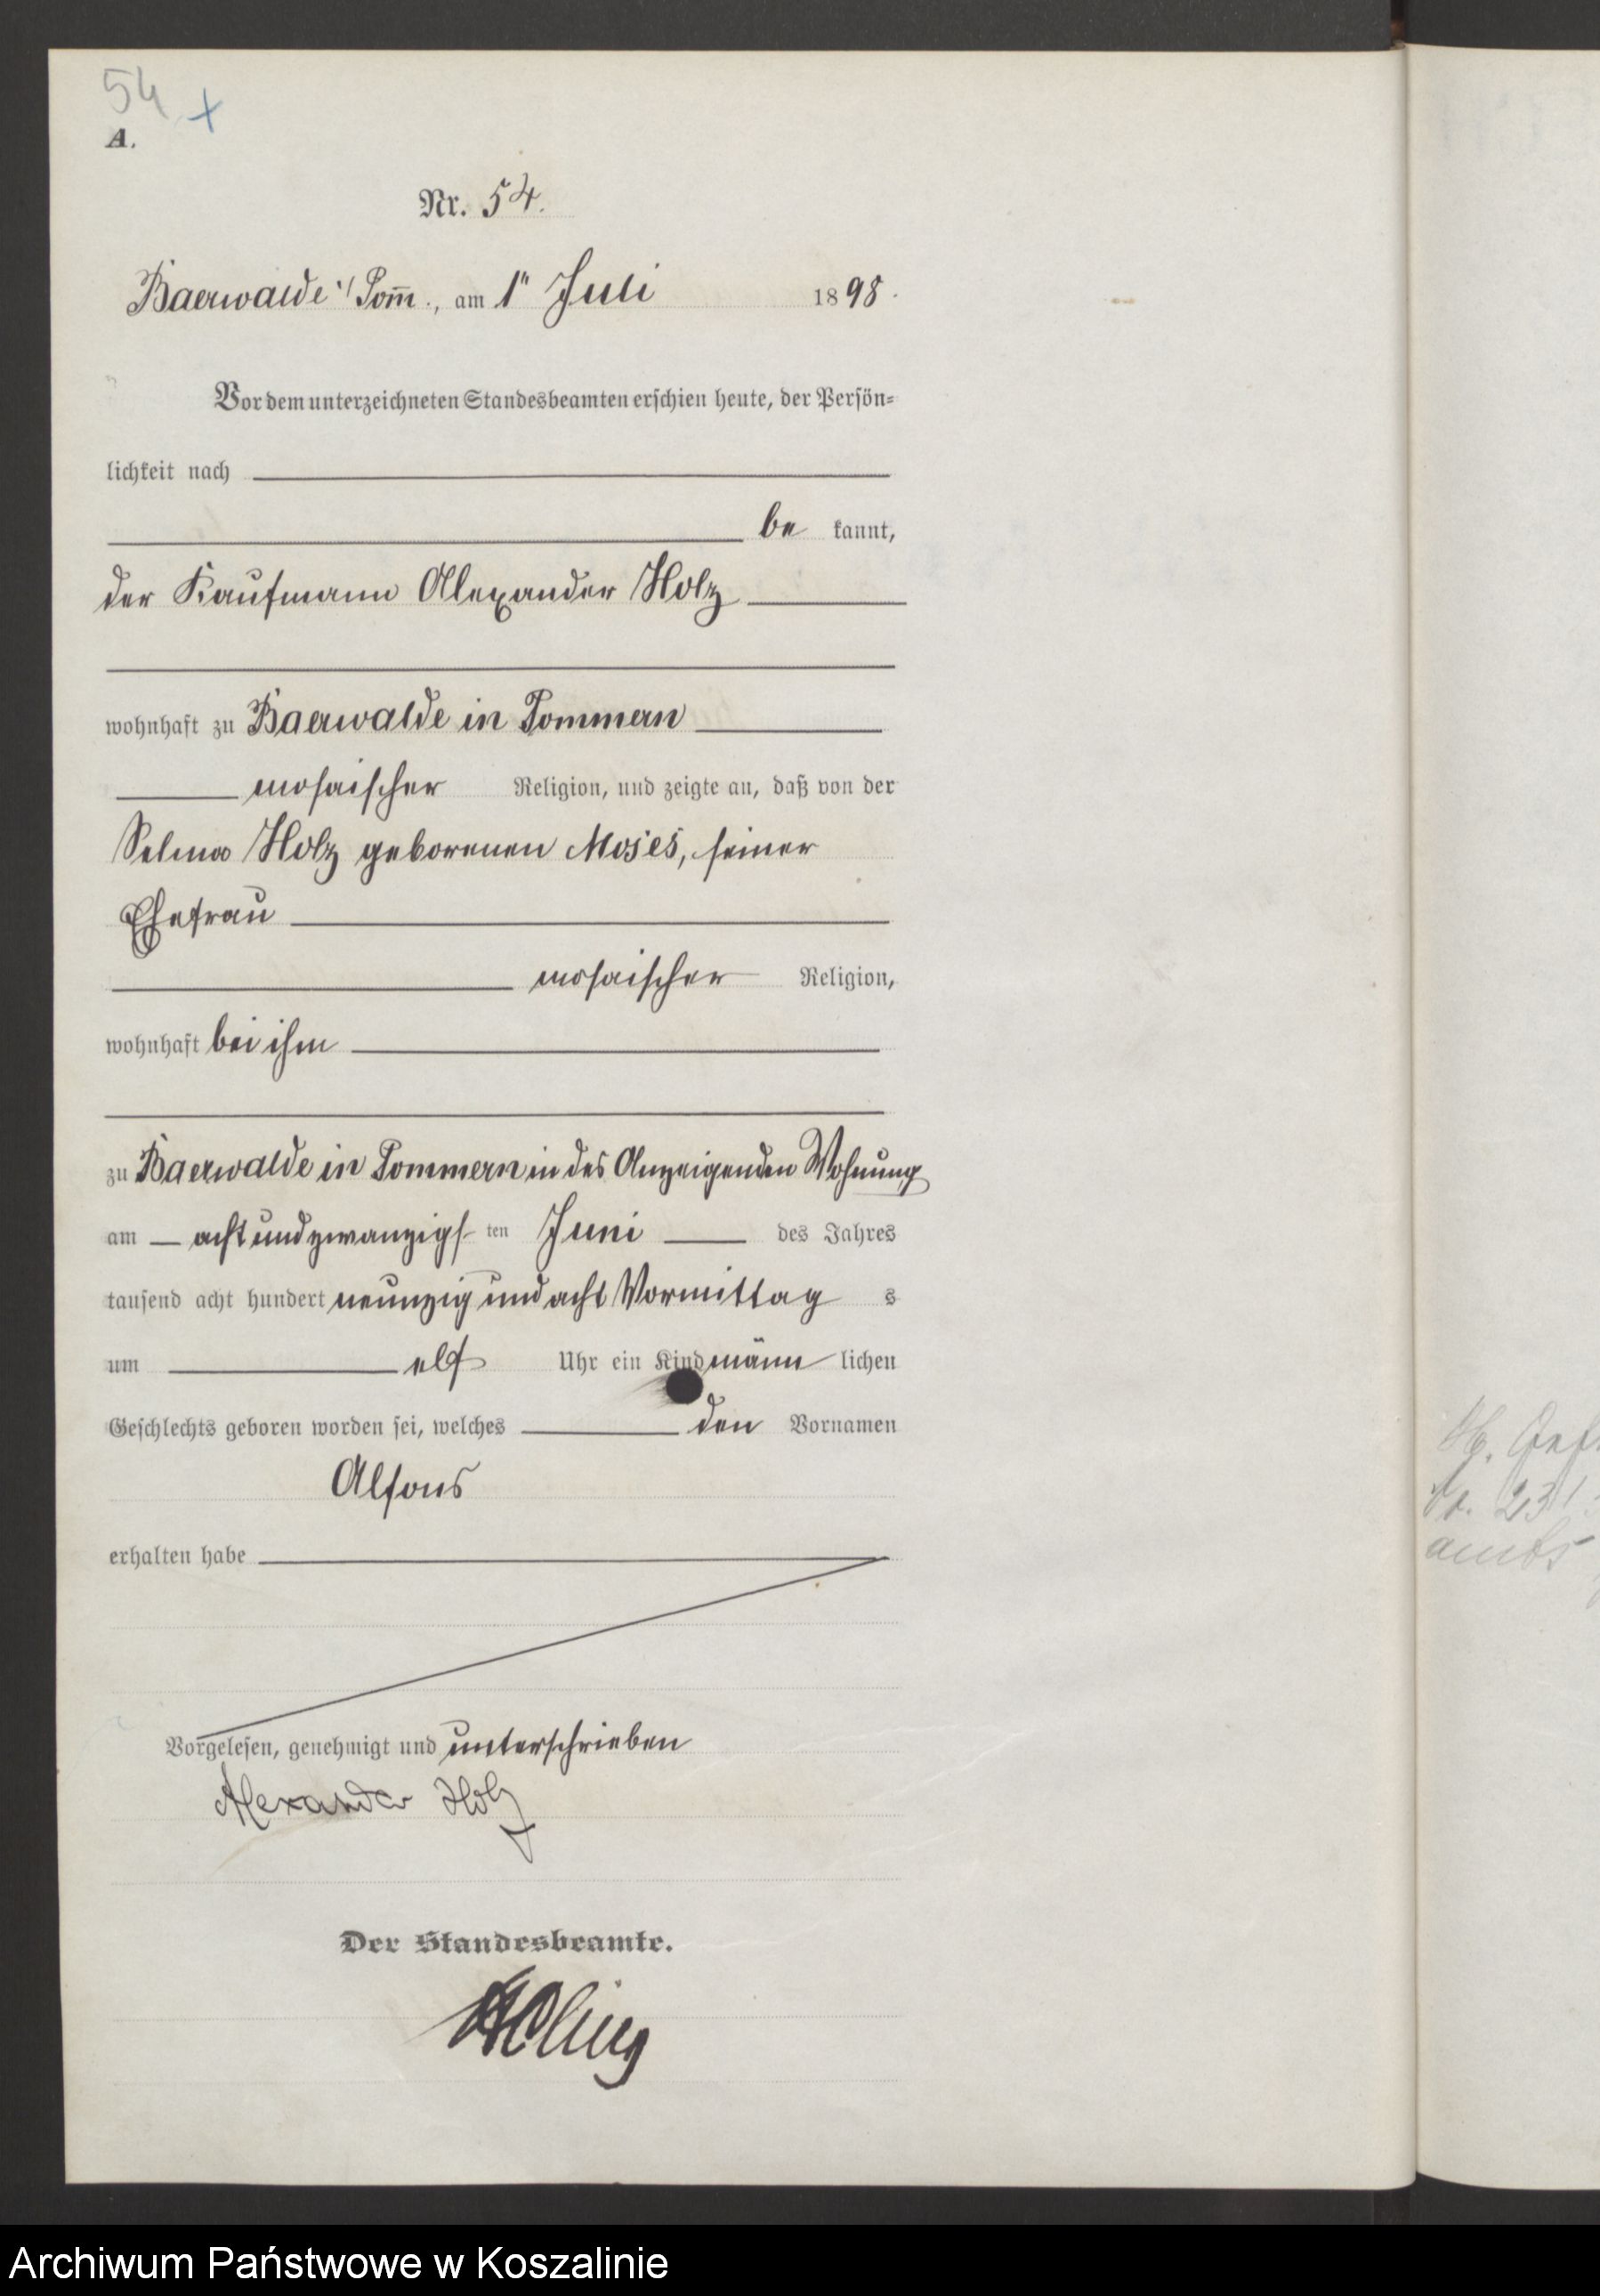 54 +
A.
Nr. 54.
Baerwalde i/Pom̅., am 1ten Juli 1898.
Vor dem unterzeichneten Standesbeamten erschien heute, der Persön=
lichkeit nach
be kannt,
der Kaufmann Alexander Holz
wohnhaft zu Baerwalde in Pommern
mosaischer Religion, und zeigte an, daß von der
Selma Holz geborenen Moses, seiner
Ehefrau
mosaischer Religion,
wohnhaft bei ihm
zu Baerwalde in Pommern in des Anzeigenden Wohnung
am acht und zwanzigs ten Juni des Jahres
tausend acht hundert neunzig und acht Vormittag s
um elf Uhr ein Kind männ lichen
Geschlechts geboren worden sei, welches den Vornamen
Alfons
erhalten habe
Vorgelesen, genehmigt und unterschrieben
Alexander Holz
Der Standesbeamte.
amts
Archiwum Państwowe w Koszalinie